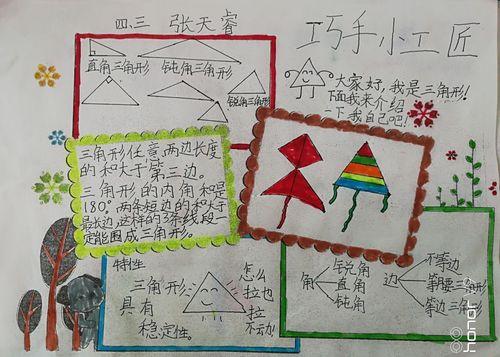 四.三 张天睿
巧手小工匠
直角三角形
钝角三角形
锐角三角形
大家好,我是三角形!
下面我来介绍
一下我自己吧!
三角形任意两边长度
的和大于第三边。
三角形的内角和是
180°.两条短边的和大于
最长边,这样的3条线段一
定能围成三角形。
特性
三角形
具有
稳定性。
怎么
拉也
拉
不动!
角
锐角
直角
钝角
边
不等边
等腰三角形
等边三角形
honor